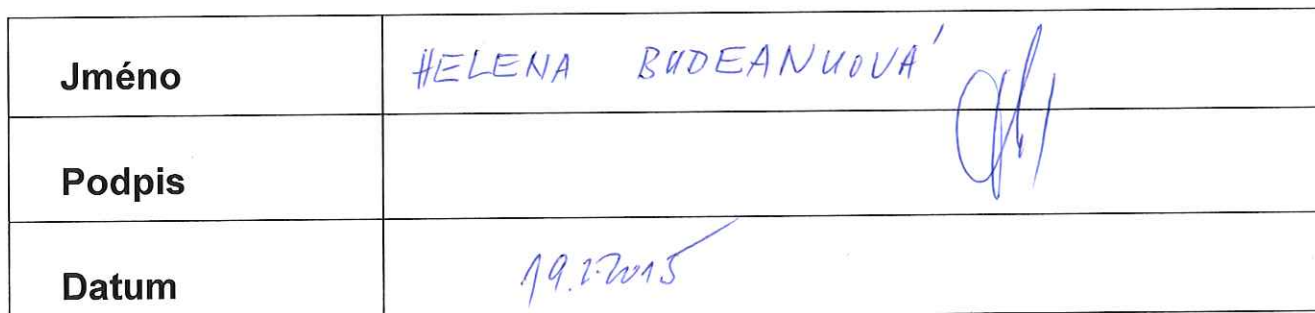 Jméno HELENA BUDEANUOVÁ
Podpis
Datum 19.2.2015